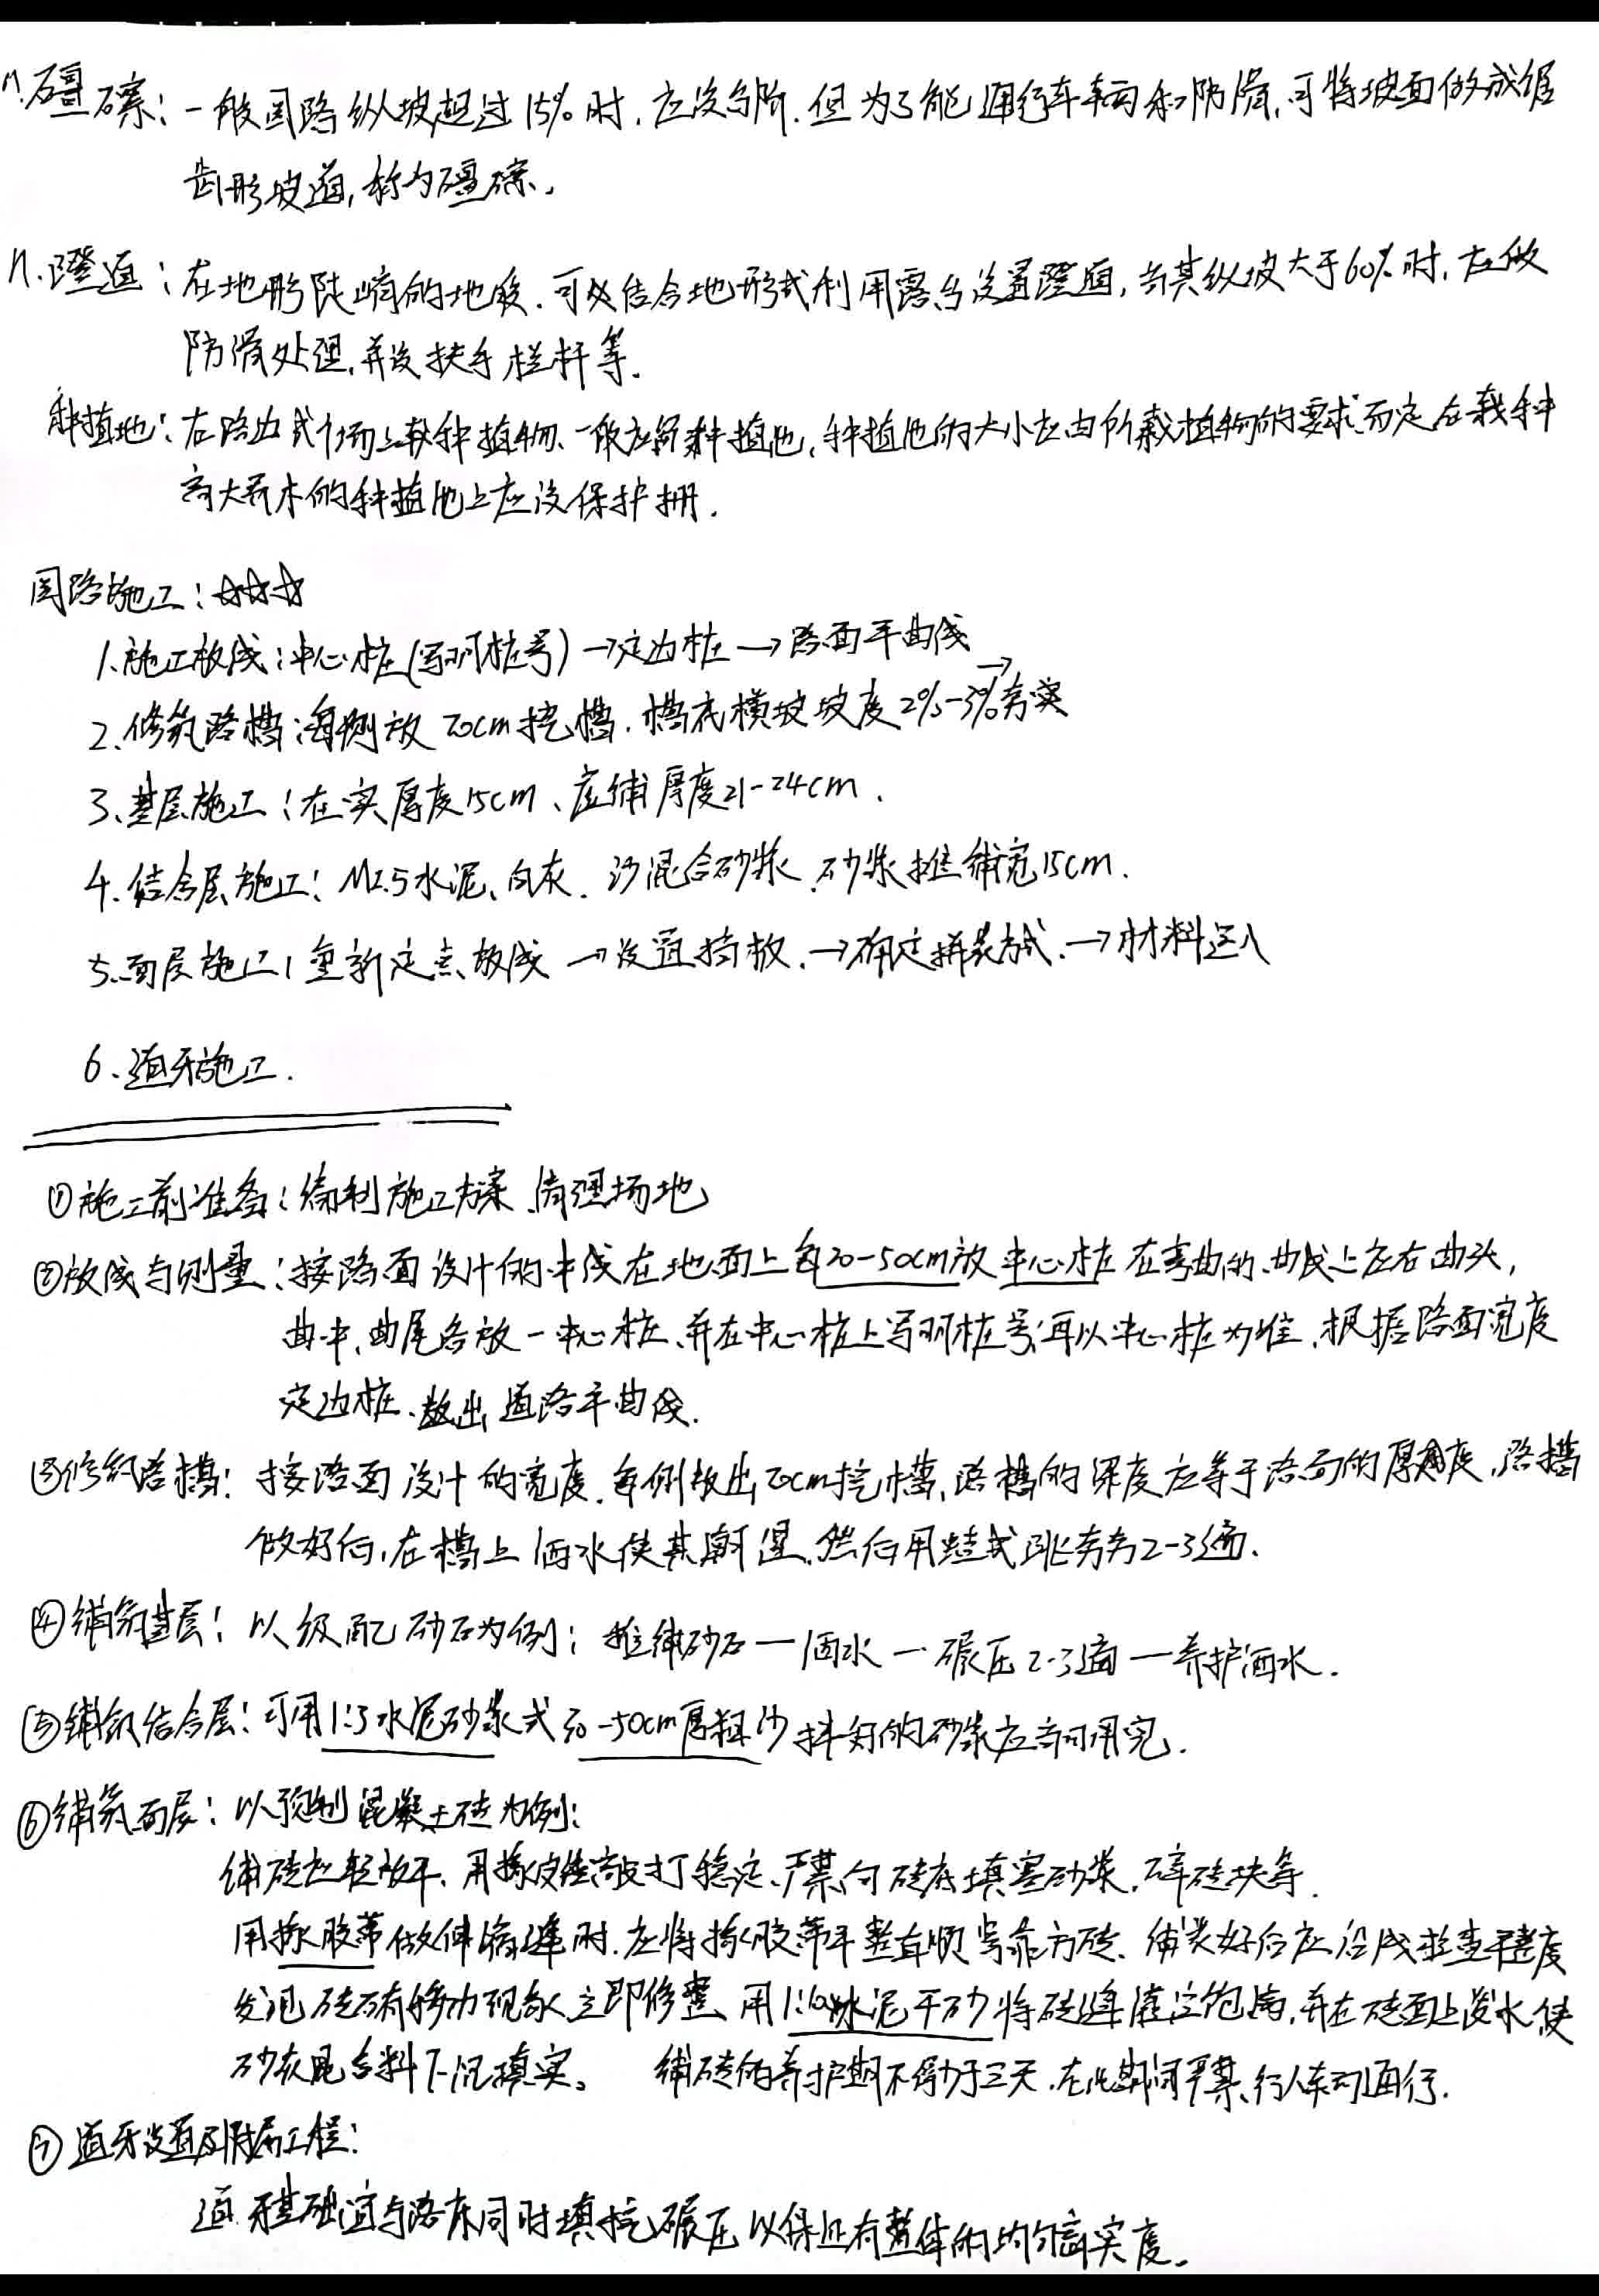 礓磜：一般园路纵坡超过15%时，应设台阶.但为了能通行车辆和防滑，可将坡面做成锯
齿形坡道，称为礓磜。
磴道：在地形陡峭的地段.可以结合地形或利用露岩设置磴道，当其纵坡大于60%时，应做
防滑处理，并设扶手栏杆等.
种植池：在路边或广场上栽种植物、一般应留种植池，种植池的大小应由所栽植物的要求而定 在栽种
高大乔木的种植池上应设保护栅.
园路施工：☆☆☆
1.施工放线：中心桩(写明桩号)→定边桩→路面平曲线
2.修筑路槽：每侧放20cm挖槽.槽底横坡坡度2%-3%→夯实
3.基层施工：在实厚度15cm、虚铺厚度21-24cm.
4.结合层施工：M2.5水泥、白灰.沙混合砂浆.砂浆摊铺宽15cm.
5.面层施工：重新定点、放线→设置挡板.→确定拼装方式.→材料运入
6.道牙施工.
①施工前准备：编制施工方案、清理场地
②放线与测量：按路面设计的中线在地面上每20-50cm放中心桩在弯曲的曲线上应在曲头，
曲中，曲尾各放一中心桩、并在中心桩上写明桩号，再以中心桩为准、根据路面宽度
定边桩、放出道路平曲线.
③修筑路槽：按路面设计的宽度.每侧放出20cm挖槽，路槽的深度应等于路面的厚度，路槽
做好后，在槽上洒水使其潮湿，然后用蛙式跳夯夯2-3遍.
④铺筑基层：以级配砂石为例：摊铺砂石一洒水一碾压2-3遍一养护洒水.
⑤铺筑结合层：可用1:3水泥砂浆或30-50cm厚粗沙 拌好的砂浆应当日用完.
⑥铺筑面层：以预制混凝土砖为例：
铺砖应轻放平、用橡皮锤敲打稳定、严禁向砖底填塞砂浆，碎砖块等.
用橡胶带做伸缩缝时.应将橡胶带平整直顺紧靠方砖、铺装好后应沿线检查平整度
发现砖有移动现象立即修整 用1:10水泥干砂将砖缝灌注饱满，并在砖面上泼水使
砂灰混合料下沉填实。 铺砖的养护期不得少于三天.在此期间严禁行人车辆通行.
⑦道牙设置及附属工程：
道牙基础宜与路床同时填挖碾压以保证有整体的均匀密实度。